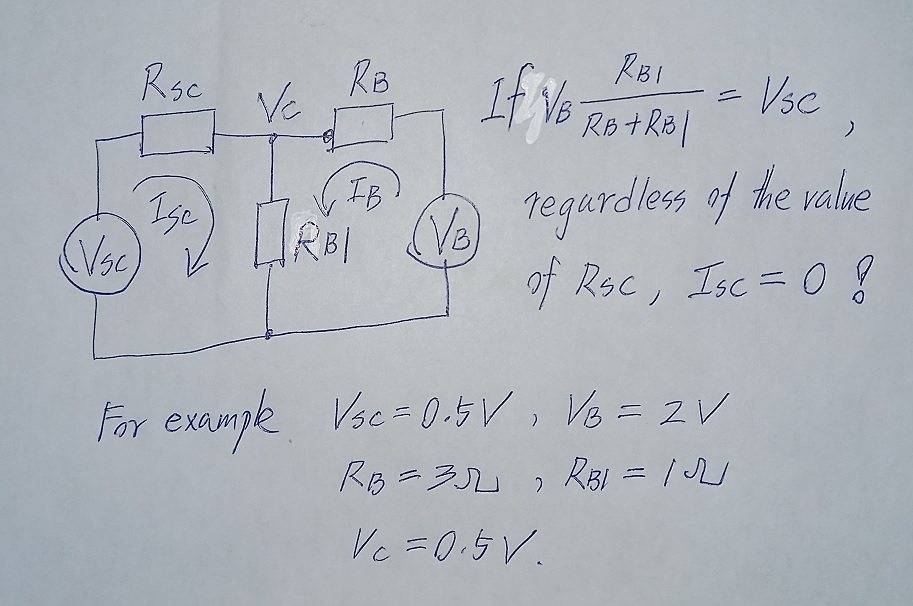 RSC
VC
RB
ISC
IB
VSC
RB1
VB
If VB RB1 / (RB + RB1) = VSC ,
regardless of the value
of RSC , ISC = 0 ?
For example VSC = 0.5V , VB = 2V
RB = 3Ω , RB1 = 1Ω
VC = 0.5V.